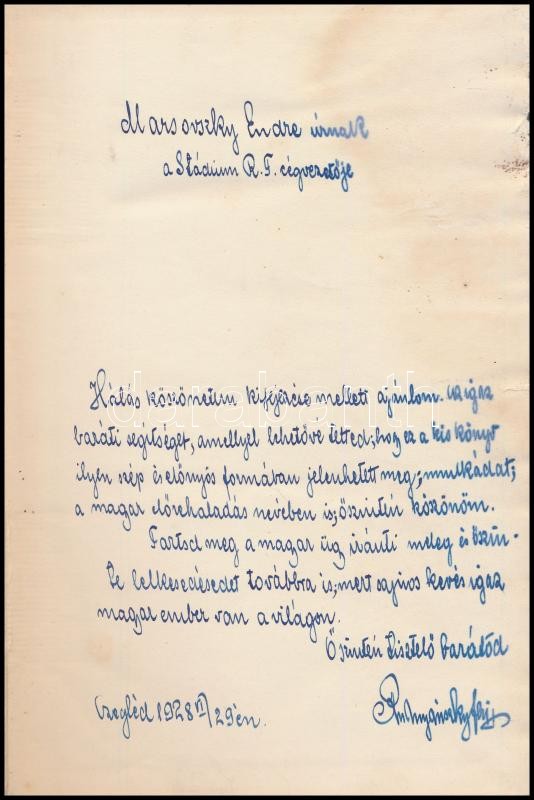 Marsovszky Endre úrnak
a Stádium R.T. cégvezetője
Hálás köszönetem kifejezése mellett ajánlom. Az igaz
baráti segitséget, amellyel lehetővé tetted; hogy ez a kis könyv
ilyen szép és előnyös formában jelenhetett meg; munkádat;
a magyar előrehaladás nevében is; őszintén köszönöm.
Tartsd meg a magyar üg iránti meleg és őszin-
te lelkesedésedet továbbra is; mert sajnos kevés igaz
magyar ember van a világon.
Őszintén tisztelő barátod
Czegléd 1928 VI/29én.
darabanth